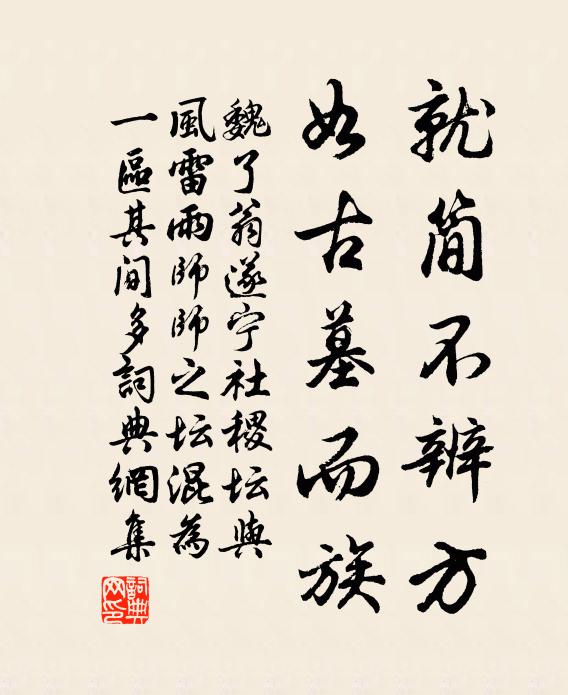 就简不辨方
如古墓而族
魏了翁遂宁社稷坛與
風雷雨師師之坛混為
一區其间多詞典網集
詞典网印